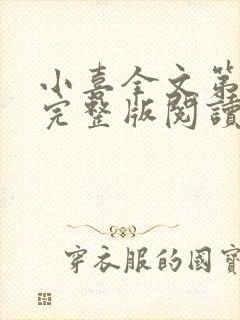 小喜全文第
完整版閱讀
穿衣服的國寶